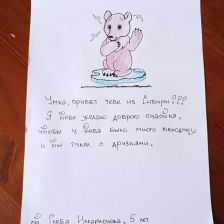 Умка, привет тебе из Сибири!!!
Я тебе желаю доброго счастья,
чтобы у тебя было много выходных
и ты гулял с друзьями.
от Глеба Илларионова, 5 лет